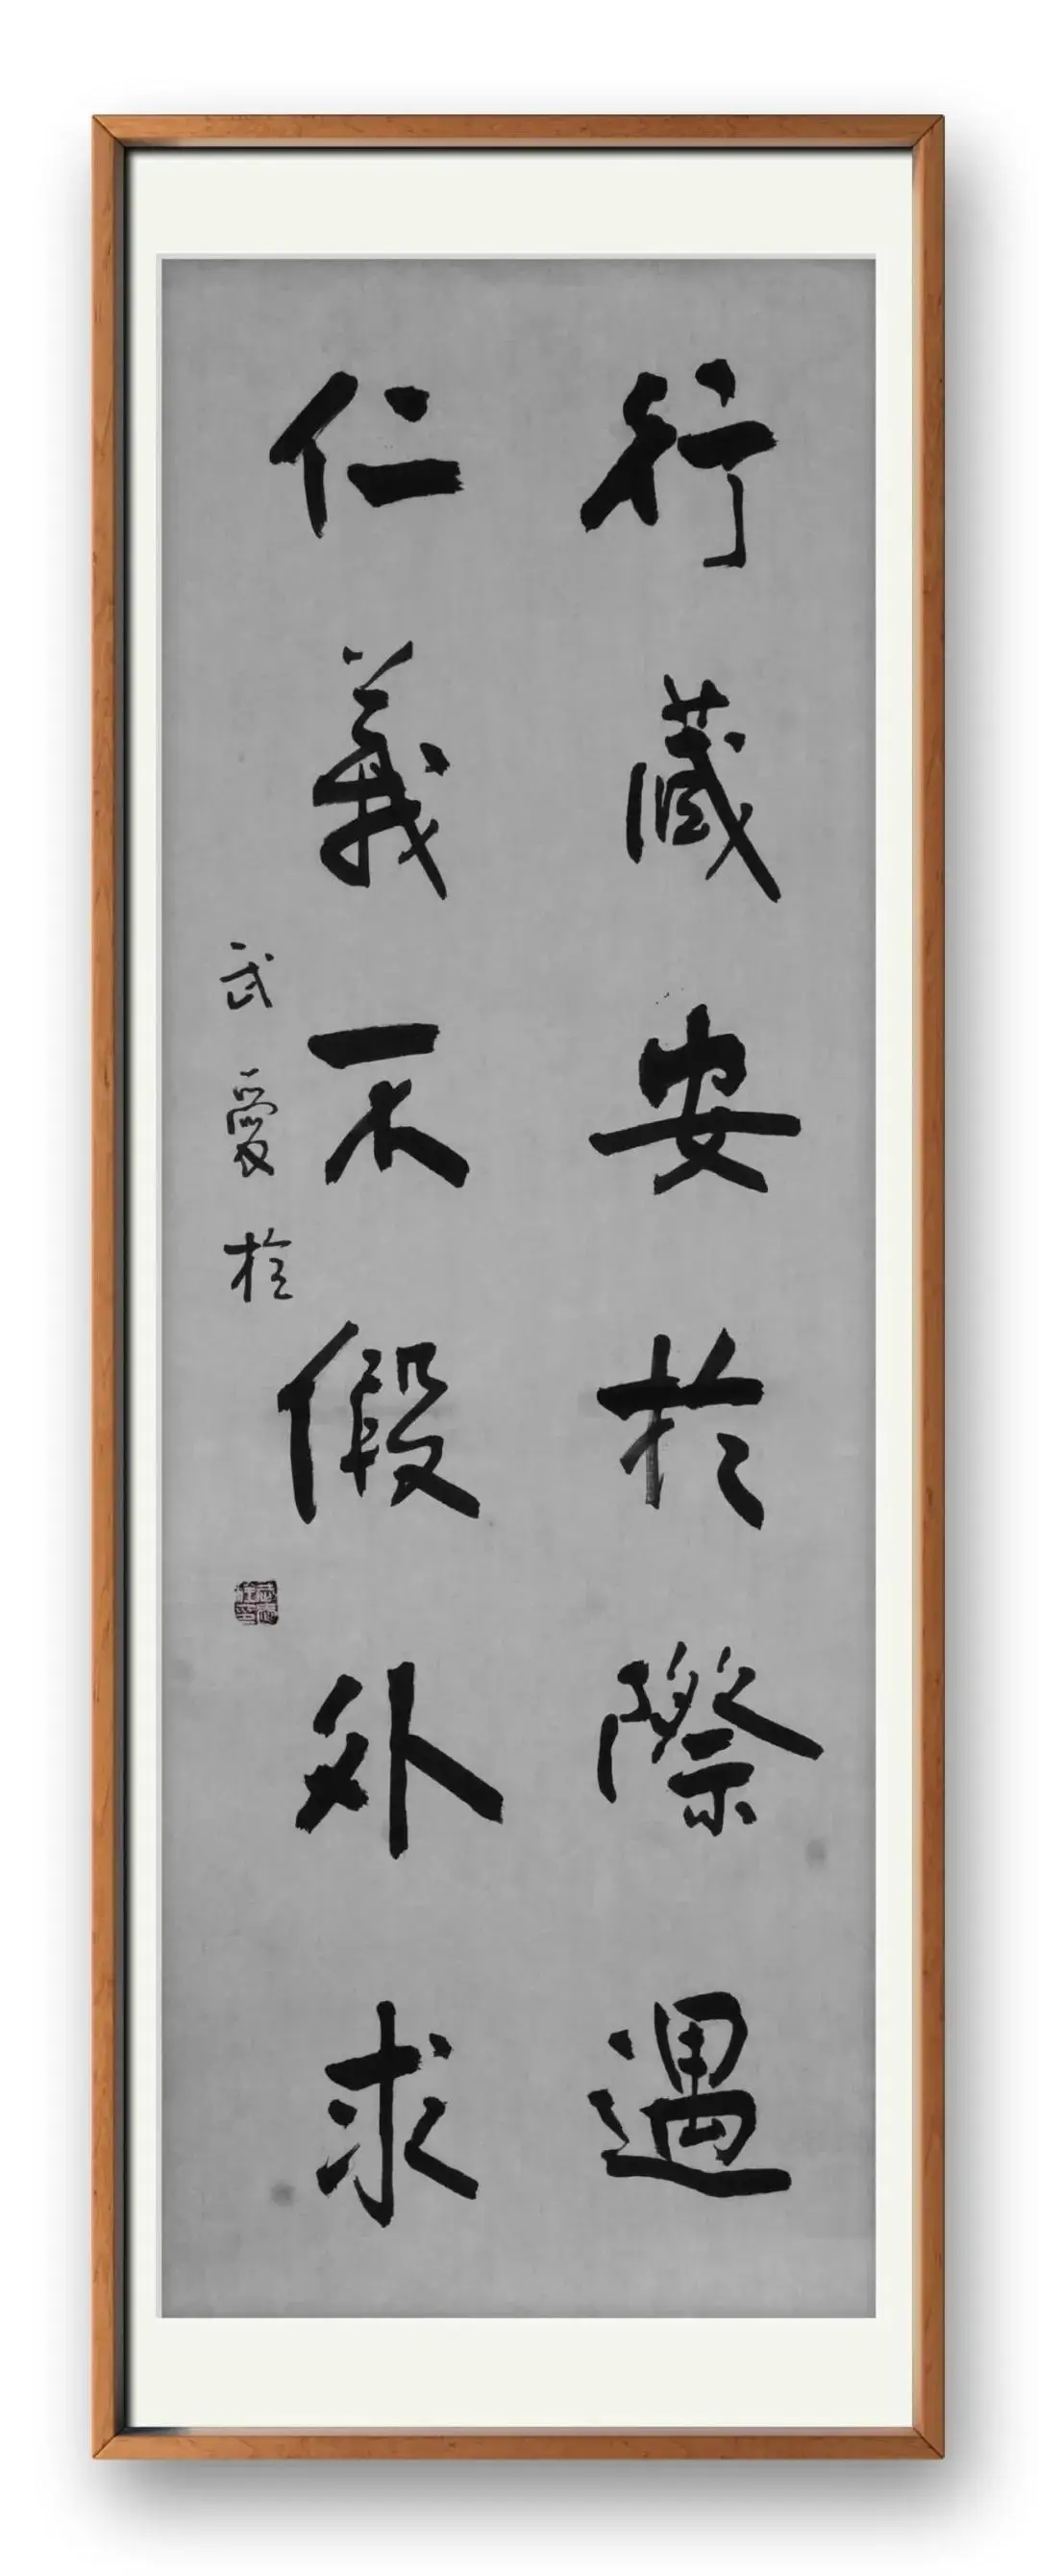 行藏安於際遇
仁義不假外求
武愛柱